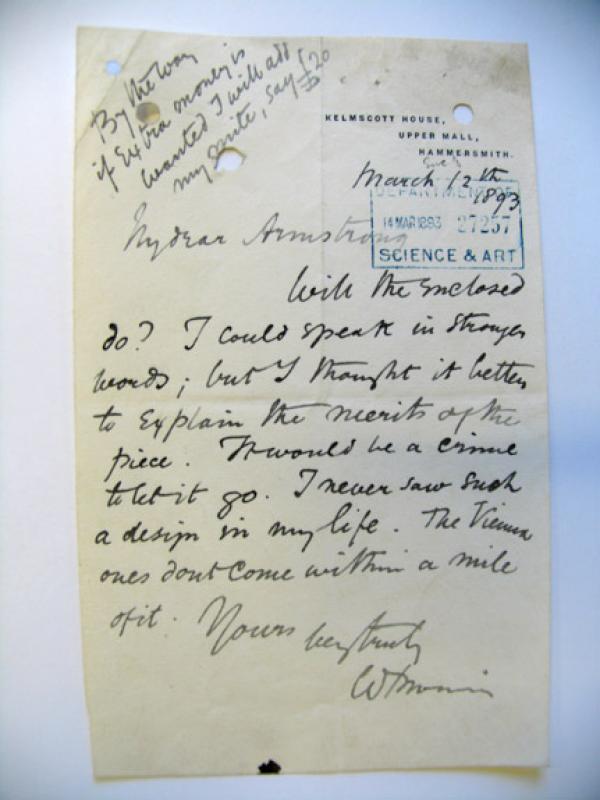 By the way
if Extra money is
wanted I will add
my mite, say £20
KELMSCOTT HOUSE,
UPPER MALL,
HAMMERSMITH.
March 13th
1893
DEPARTMENT OF
14 MAR 1893 27257
SCIENCE & ART
My dear Armstrong
Will the enclosed
do? I could speak in stronger
words; but I thought it better
to Explain the merits of the
piece. It would be a crime
to let it go. I never saw such
a design in my life. The Vienna
ones dont come within a mile
of it. Yours very truly
W Morris